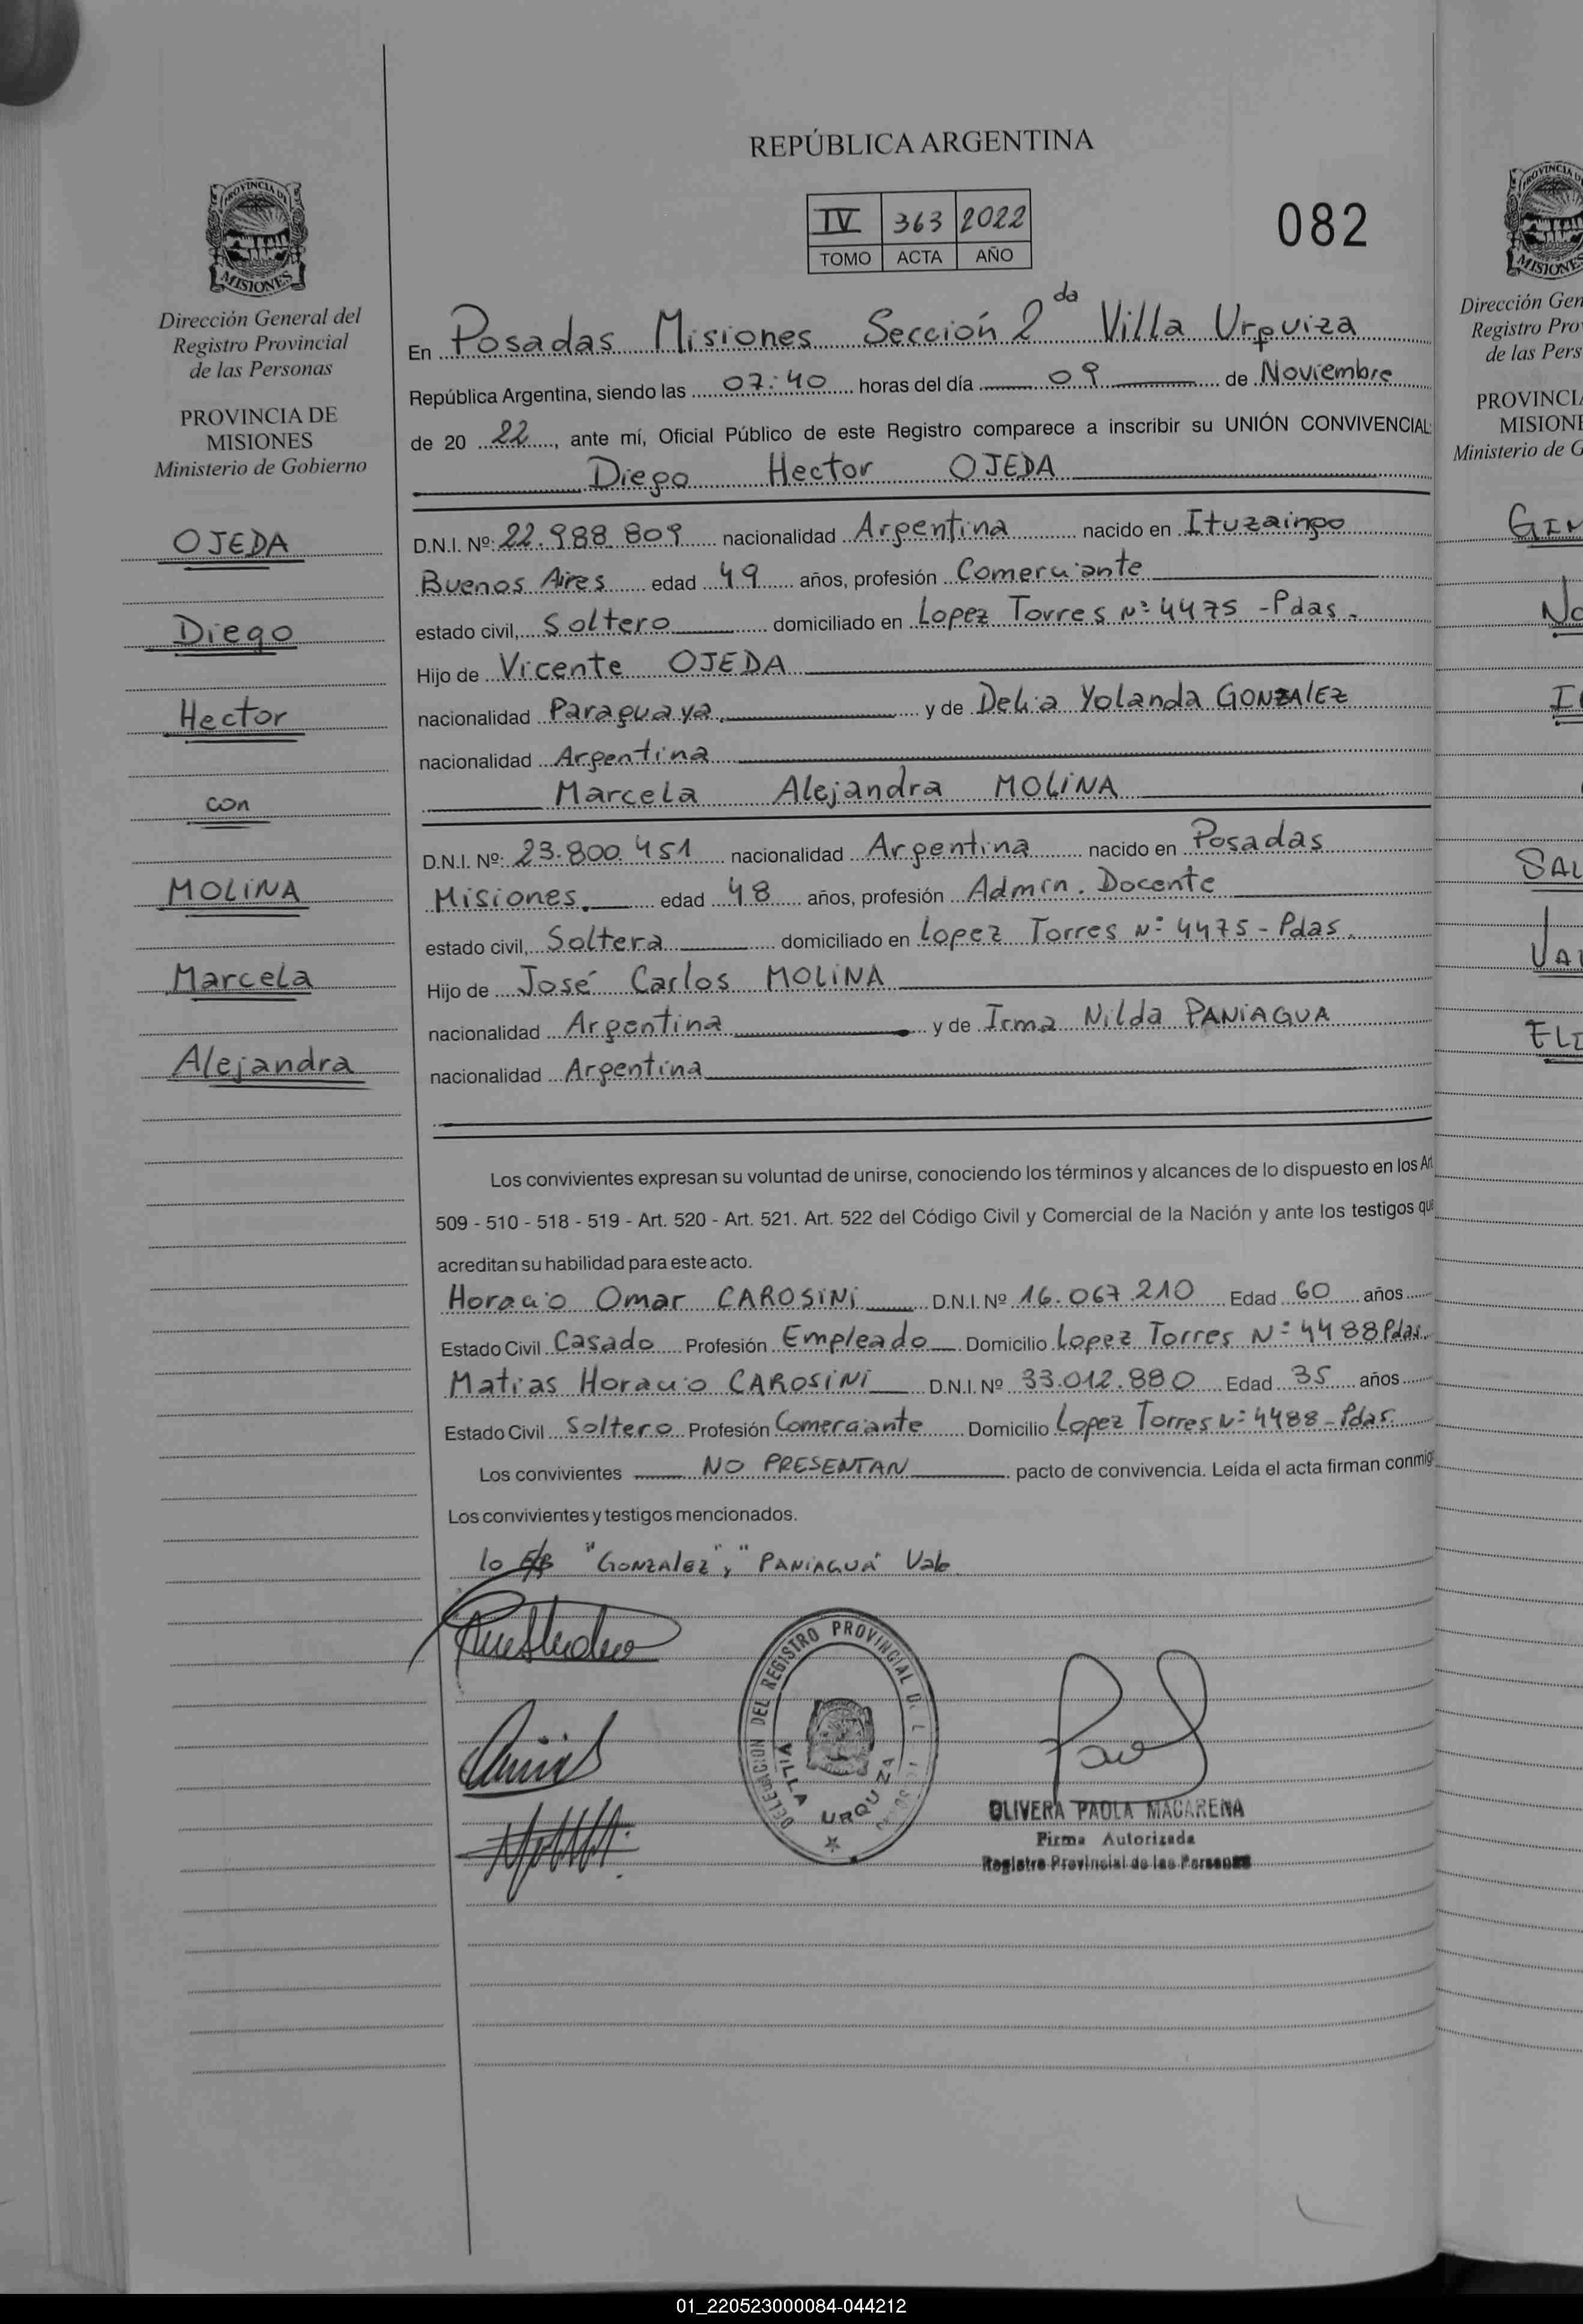 REPÚBLICA ARGENTINA
IV 363 2022
TOMO ACTA AÑO
082
PROVINCIA DE
MISIONES
Dirección General del
Registro Provincial
de las Personas
PROVINCIA DE
MISIONES
Ministerio de Gobierno
OJEDA
Diego
Hector
con
MOLINA
Marcela
Alejandra
En Posadas Misiones Sección 2da Villa Urquiza
República Argentina, siendo las 07:40 horas del día 09 de Noviembre
de 20 22, ante mí, Oficial Público de este Registro comparece a inscribir su UNIÓN CONVIVENCIAL:
Diego Hector OJEDA
D.N.I. Nº: 22.988.809 nacionalidad Argentina nacido en Ituzaingo
Buenos Aires edad 49 años, profesión Comerciante
estado civil, Soltero domiciliado en Lopez Torres Nº 4475 - Pdas.
Hijo de Vicente OJEDA
nacionalidad Paraguaya. y de Delia Yolanda GONZALEZ
nacionalidad Argentina
Marcela Alejandra MOLINA
D.N.I. Nº: 23.800.451 nacionalidad Argentina nacido en Posadas
Misiones. edad 48 años, profesión Admin. Docente
estado civil, Soltera domiciliado en Lopez Torres Nº 4475 - Pdas.
Hijo de José Carlos MOLINA
nacionalidad Argentina y de Irma Nilda PANIAGUA
nacionalidad Argentina
Los convivientes expresan su voluntad de unirse, conociendo los términos y alcances de lo dispuesto en los Art
509 - 510 - 518 - 519 - Art. 520 - Art. 521. Art. 522 del Código Civil y Comercial de la Nación y ante los testigos que
acreditan su habilidad para este acto.
Horacio Omar CAROSINI D.N.I. Nº 16.067.210 Edad 60 años
Estado Civil Casado Profesión Empleado Domicilio Lopez Torres Nº 4488 Pdas.
Matias Horacio CAROSINI D.N.I. Nº 33.012.880 Edad 35 años
Estado Civil Soltero Profesión Comerciante Domicilio Lopez Torres Nº 4488 - Pdas.
Los convivientes NO PRESENTAN pacto de convivencia. Leída el acta firman conmig
Los convivientes y testigos mencionados.
lo "GONZALEZ", "PANIAGUA" Vale
DELEGACION DEL REGISTRO PROVINCIAL DE
VILLA URQUIZA
OLIVERA PAOLA MACARENA
Firma Autorizada
Registro Provincial de las Personas
Dirección Gen
Registro Pro
de las Pers
PROVINCIA
MISIONE
Ministerio de G
01_220523000084-044212